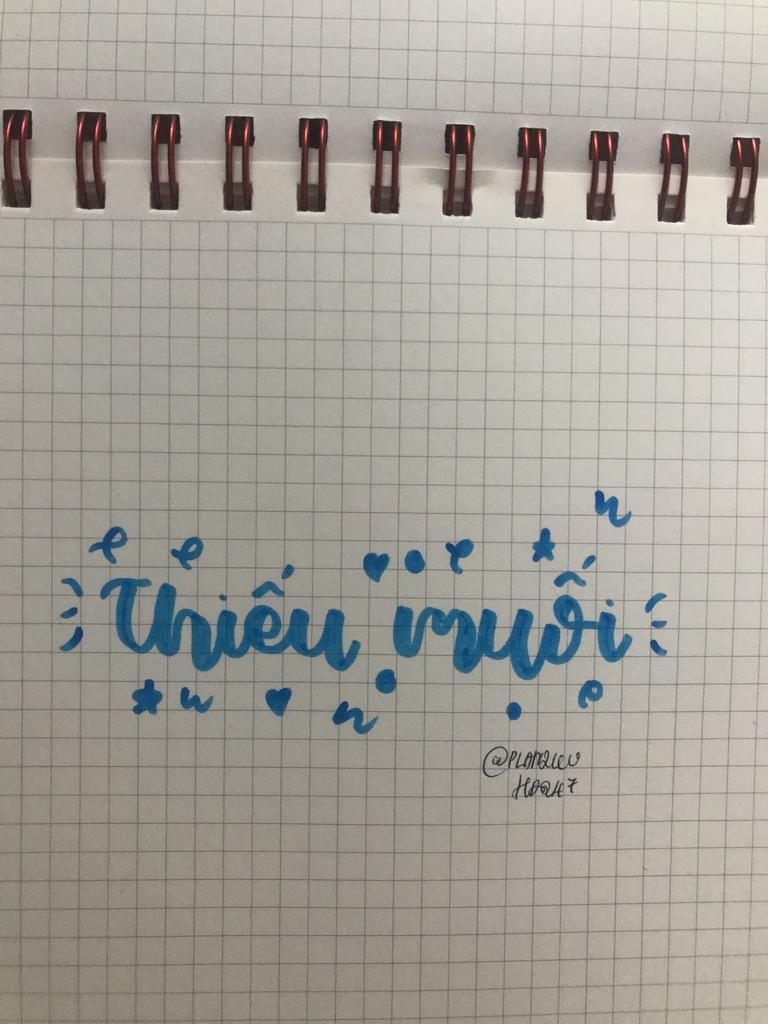 Thiếu muối